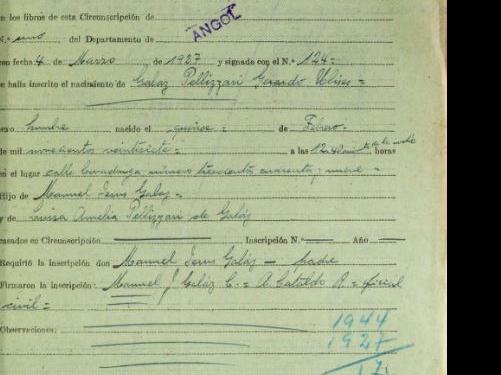 en los libros de esta Circunscripción de
ANGOL
N.º uno del Departamento de
con fecha 4 de Marzo de 1927 y signado con el N.º 124=
se halla inscrito el nacimiento de Galaz Pellizzari Gerardo Ulises=
sexo hombre nacido el quince= de Febrero.
de mil novecientos veintisiete= a las 12 de la noche horas
en el lugar calle número trescientos cuarenta y nueve=
Hijo de Manuel Jesus Galaz=
y de Luisa Amelia Pellizzari de Galaz
casados en Circunscripción Inscripción N.º Año
Requirió la inscripción don Manuel Jesus Galaz — padre
Firmaron la inscripción: Manuel J. Galaz C.= A. Cataldo R.= oficial
civil=
Observaciones:
1944
1927
17.